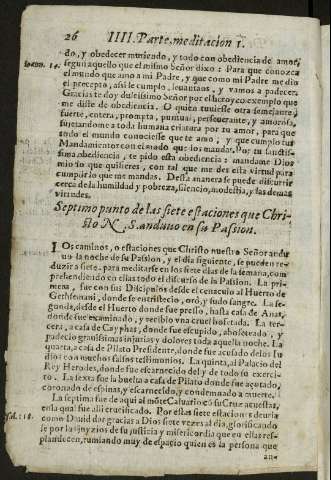 26 IIII. Parte, meditacion 1.
do, y obedecer muriendo, y todo con obediencia de amor,
Ioan. 14. segun aquello que el mismo Señor dixo: Para que conozca
el mundo que amo a mi Padre, y que como mi Padre me dio
el precepto, assi le cumplo, leuantaos, y vamos a padecer.
Gracias te doy dulcissimo Señor por el heroyco exemplo que
me diste de obediencia. O quien tuuiesse otra semejante,
fuerte, entera, prompta, puntual, perseuerante, y amorosa,
sujetandome a toda humana criatura por tu amor, para que
todo el mundo conociesse que te amo, y que cumplo tus
Mandamientos con el modo que los mandas. Por tu santissi-
ma obediencia, te pido esta obediencia: mandame Dios
mio lo que quisieres, con tal que me des esta virtud para
cumplir lo que me mandas. Desta manera se puede discurrir
cerca de la humildad y pobreza, silencio, modestia, y las demas
virtudes.
Septimo punto de las siete estaciones que Chri-
sto N. S. anduuo en su Passion.
LOs caminos, o estaciones que Christo nuestro Señor andu
uo la noche de su Passion, y el dia siguiente, se pueden re-
duzir a siete, para meditarse en los siete dias de la semana, com
prehendiendo en ellas todo el discurso de la Passion. La pri-
mera, fue con sus Discipulos desde el cenaculo al Huerto de
Gethsemani, donde se entristecio, oró, y sudo sangre. La se-
gunda, desde el Huerto donde fue presso, hasta casa de Anas,
donde fue examinado, y recibio vna cruel bofetada. La ter-
cera, a casa de Cayphas, donde fue escupido, abofeteado, y
padecio grauissimas injurias y dolores toda aquella noche. La
quarta, a casa de Pilato Presidente, donde fue acusado de los Iu
dios con muchos falsos testimonios. La quinta, al Palacio del
Rey Herodes, donde fue escarnecido del y de todo su exerci-
to. La sexta fue la buelta a casa de Pilato donde fue açotado,
coronado de espinas, y escarnecido, y condennado a muerte.
La septima fue de aqui al mõte Caluario cõ su Cruz acuestas,
en la qual fue alli crucificado. Por estas siete estaciones deuria
Psal. 118. como Dauid dar gracias a Dios siete vezes al dia, glorificando
se por los juyzios de su justicia y misericordia que en ellas res-
plandecen, rumiando muy de espacio quien es la persona que